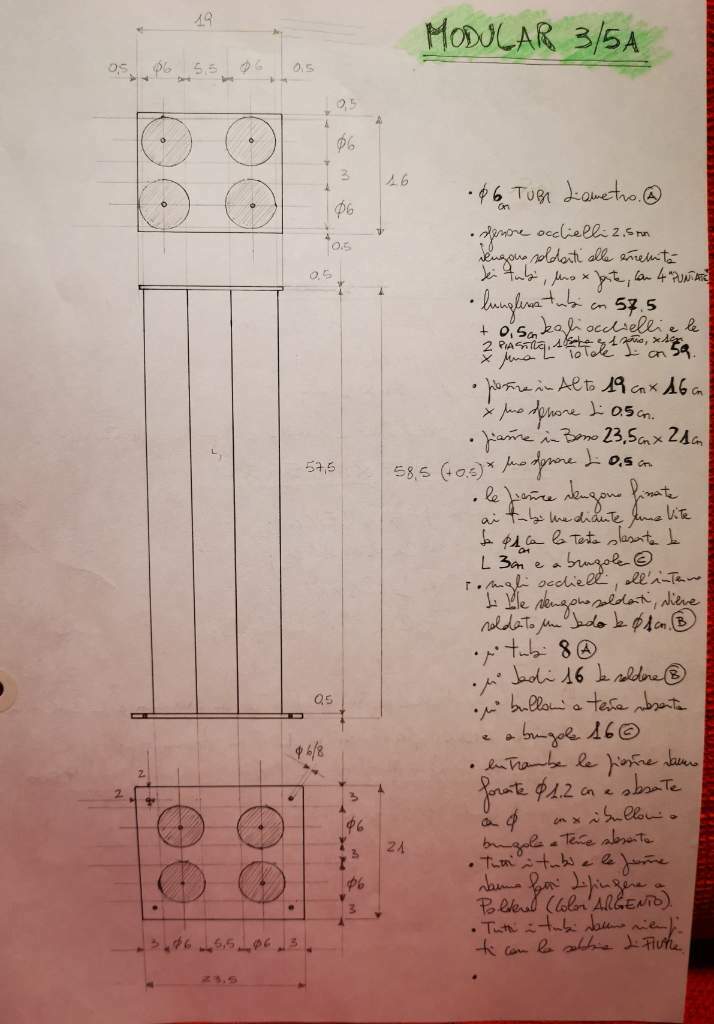 MODULAR 3/5A
19
0,5 ϕ6 5,5 ϕ6 0,5
0,5
ϕ6
3
ϕ6
0.5
16
0.5
57,5
58,5 (+0,5)
0,5
ϕ6/8
2
2
3
ϕ6
3
ϕ6
3
21
3 ϕ6 5,5 ϕ6 3
23,5
• ϕ 6 cm TUBI diametro. Ⓐ
• spessore occhielli 2.5 mm
vengono saldati alle estremità
dei tubi, uno x parte, con 4 "PUNTATE"
• lunghezza tubi cm 57.5
+ 0,5cm degli occhielli e le
2 PIASTRE, 1 sotto e 1 sopra, x 1cm
x una L TOTALE di cm 59.
• piastre in Alto 19 cm x 16 cm
x uno spessore di 0.5 cm.
• piastre in Basso 23,5cm x 21cm
x uno spessore di 0,5 cm
• le piastre vengono fissate
ai tubi mediante una vite
da ϕ1 cm con la testa svasata da
L 3cm e a brugola Ⓒ
• negli occhielli, all'interno
di dove vengono saldati, viene
saldato un dado da ϕ1cm. Ⓑ
• n° tubi 8 Ⓐ
• n° dadi 16 da saldare Ⓑ
• n° bulloni a testa svasata
e a brugola 16 Ⓒ
• entrambe le piastre vanno
forate ϕ1.2 cm e svasate
con ϕ cm x i bulloni a
brugola e testa svasata
• Tutti i tubi e le piastre
vanno fatti dipingere a
Polvere (color ARGENTO).
• Tutti i tubi vanno riempi-
ti con la sabbia di FIUME.
•